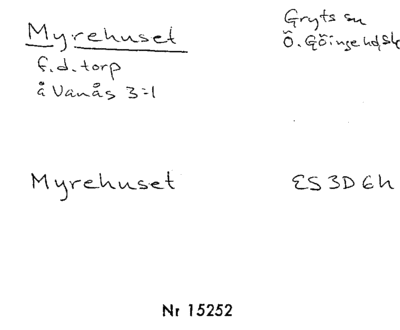 Myrehuset
f.d. torp
å Vanås 3:1
Gryts sn
Ö. Göinge hd Sk
Myrehuset
ES 3D 6h
Nr 15252